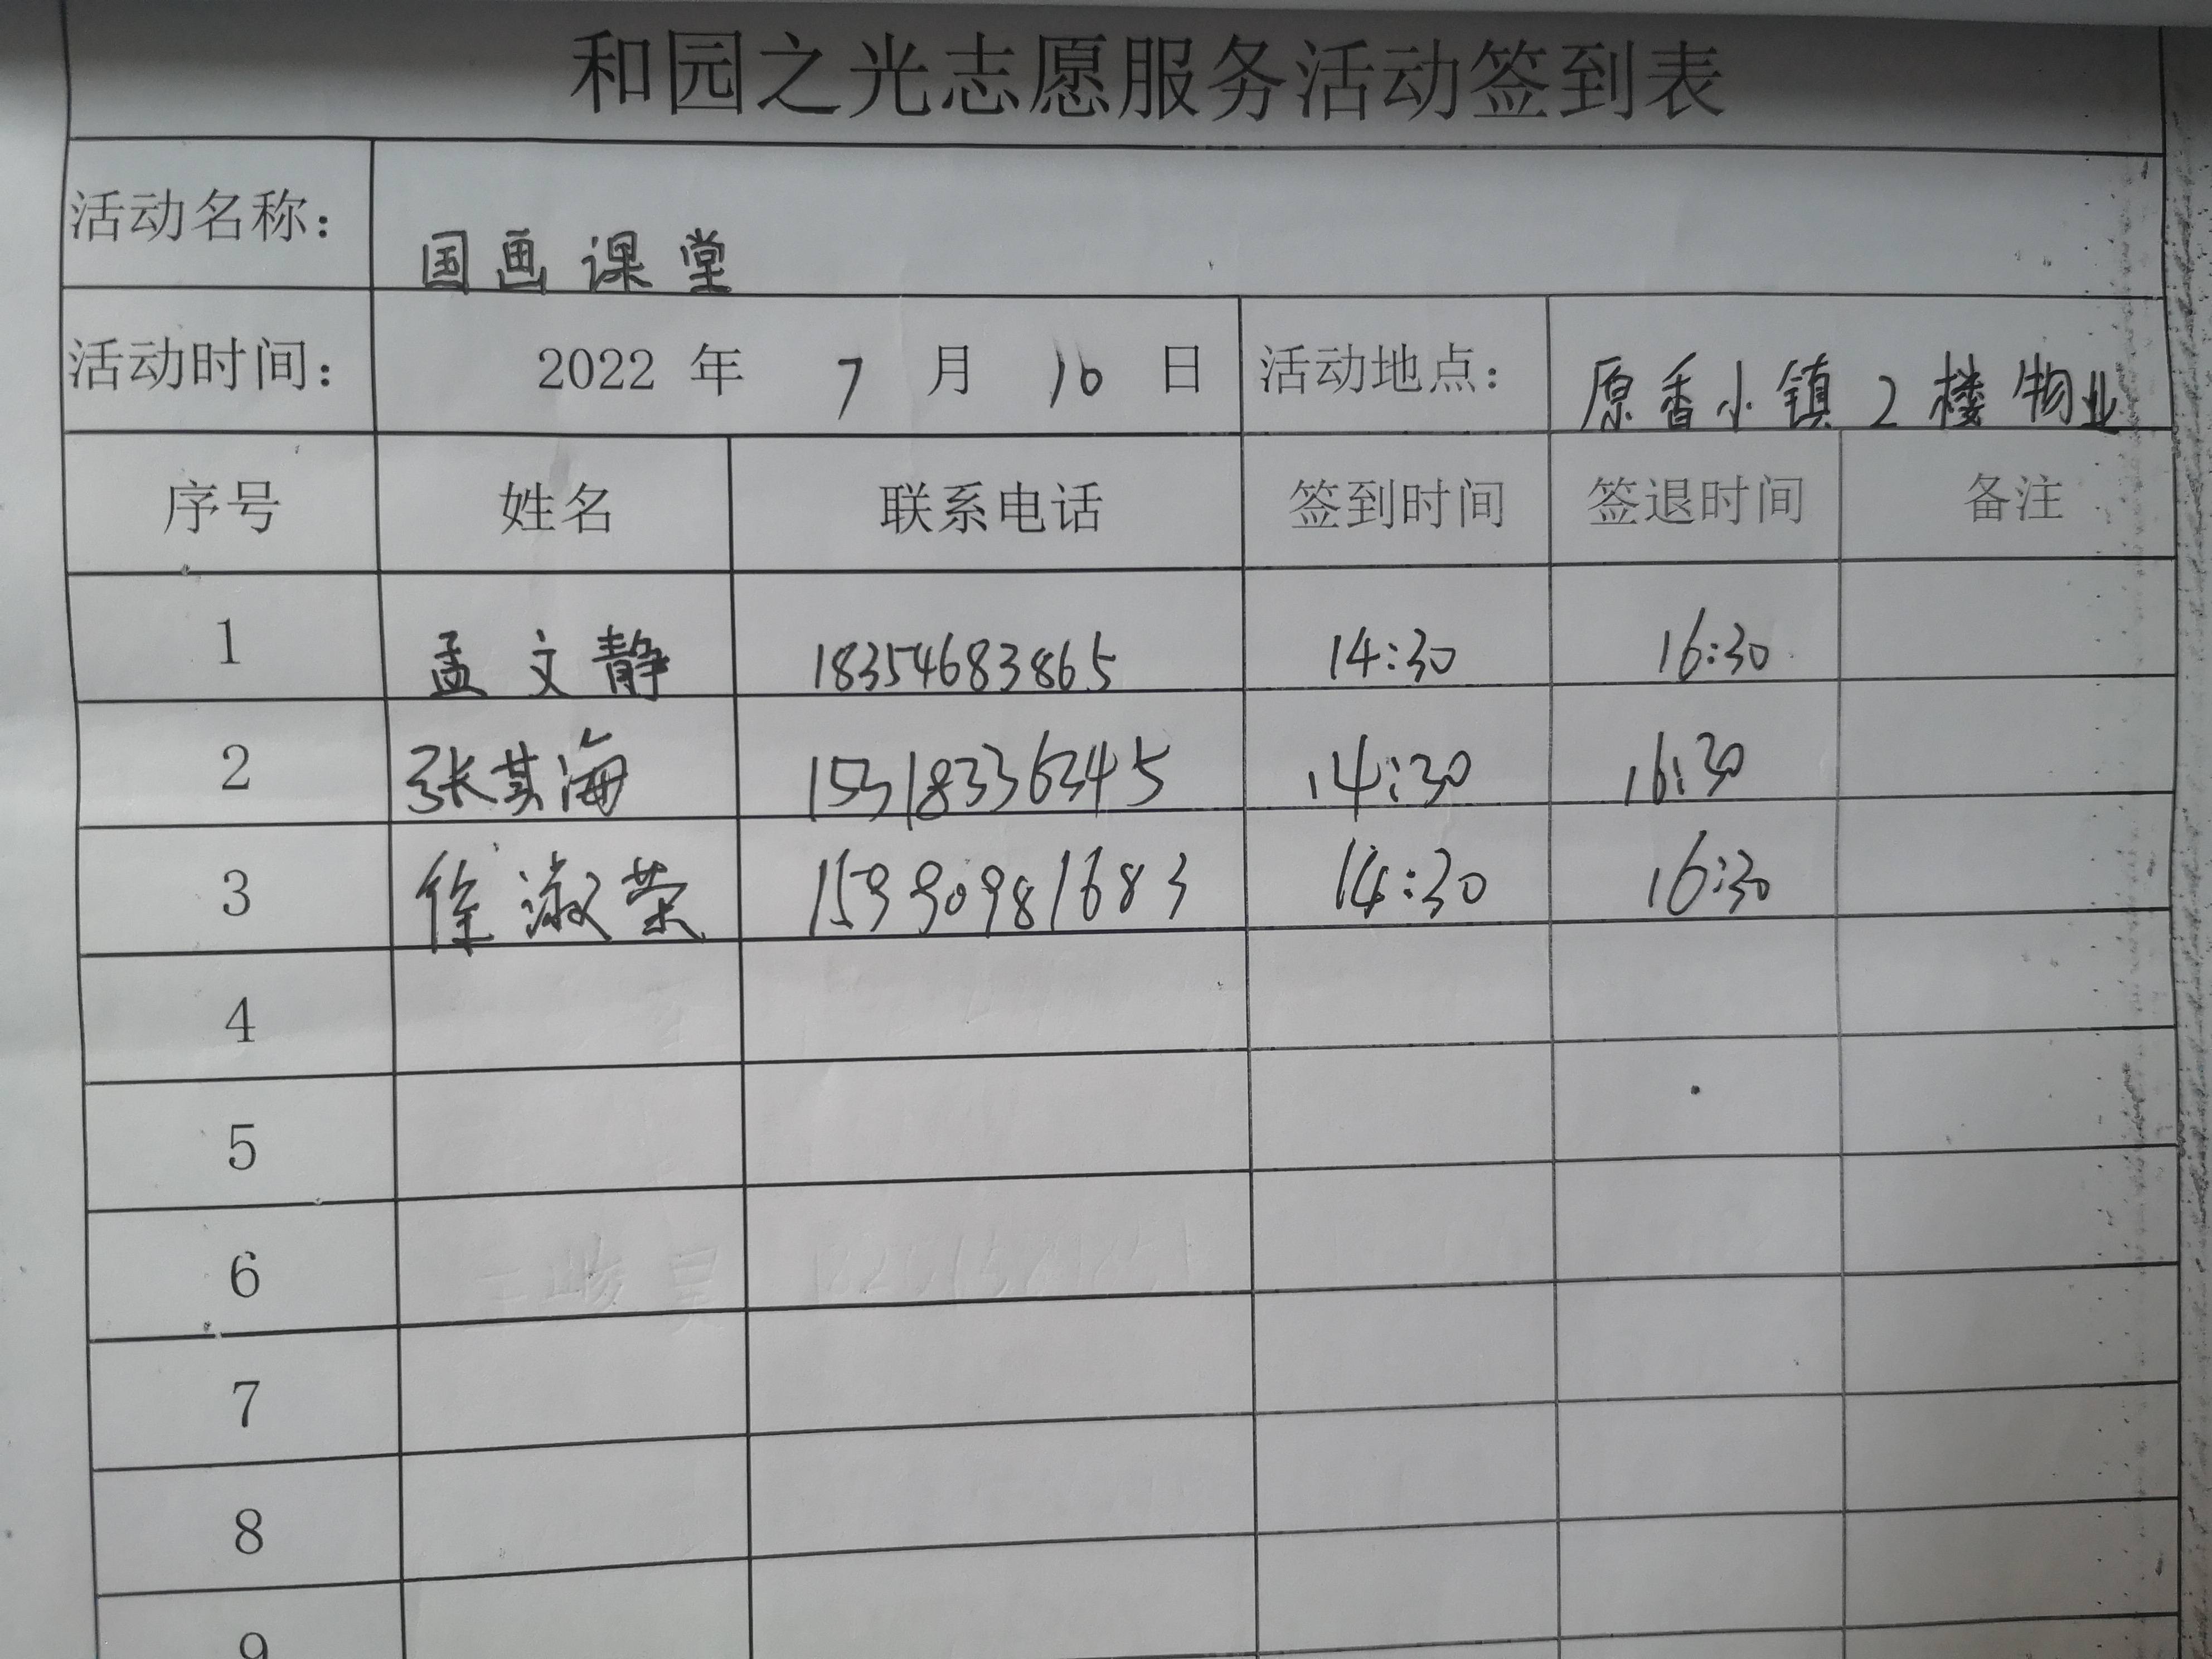 和园之光志愿服务活动签到表
活动名称： 国画课堂
活动时间： 2022 年 7 月 16 日 活动地点： 原香小镇2楼物业
序号 姓名 联系电话 签到时间 签退时间 备注
1 孟文静 18354683865 14:30 16:30
2 张其海 15318336345 14:30 16:30
3 徐淑荣 15990981683 14:30 16:30
4
5
6
7
8
9